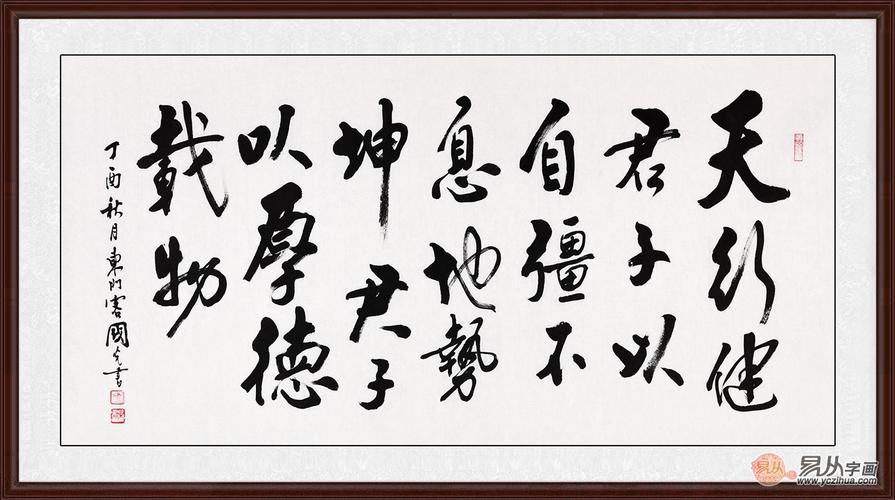 天行健
君子以
自彊不
息地勢
坤君子
以厚德
載物
丁酉秋月東門客國光書
易从字画
www.yczihua.com